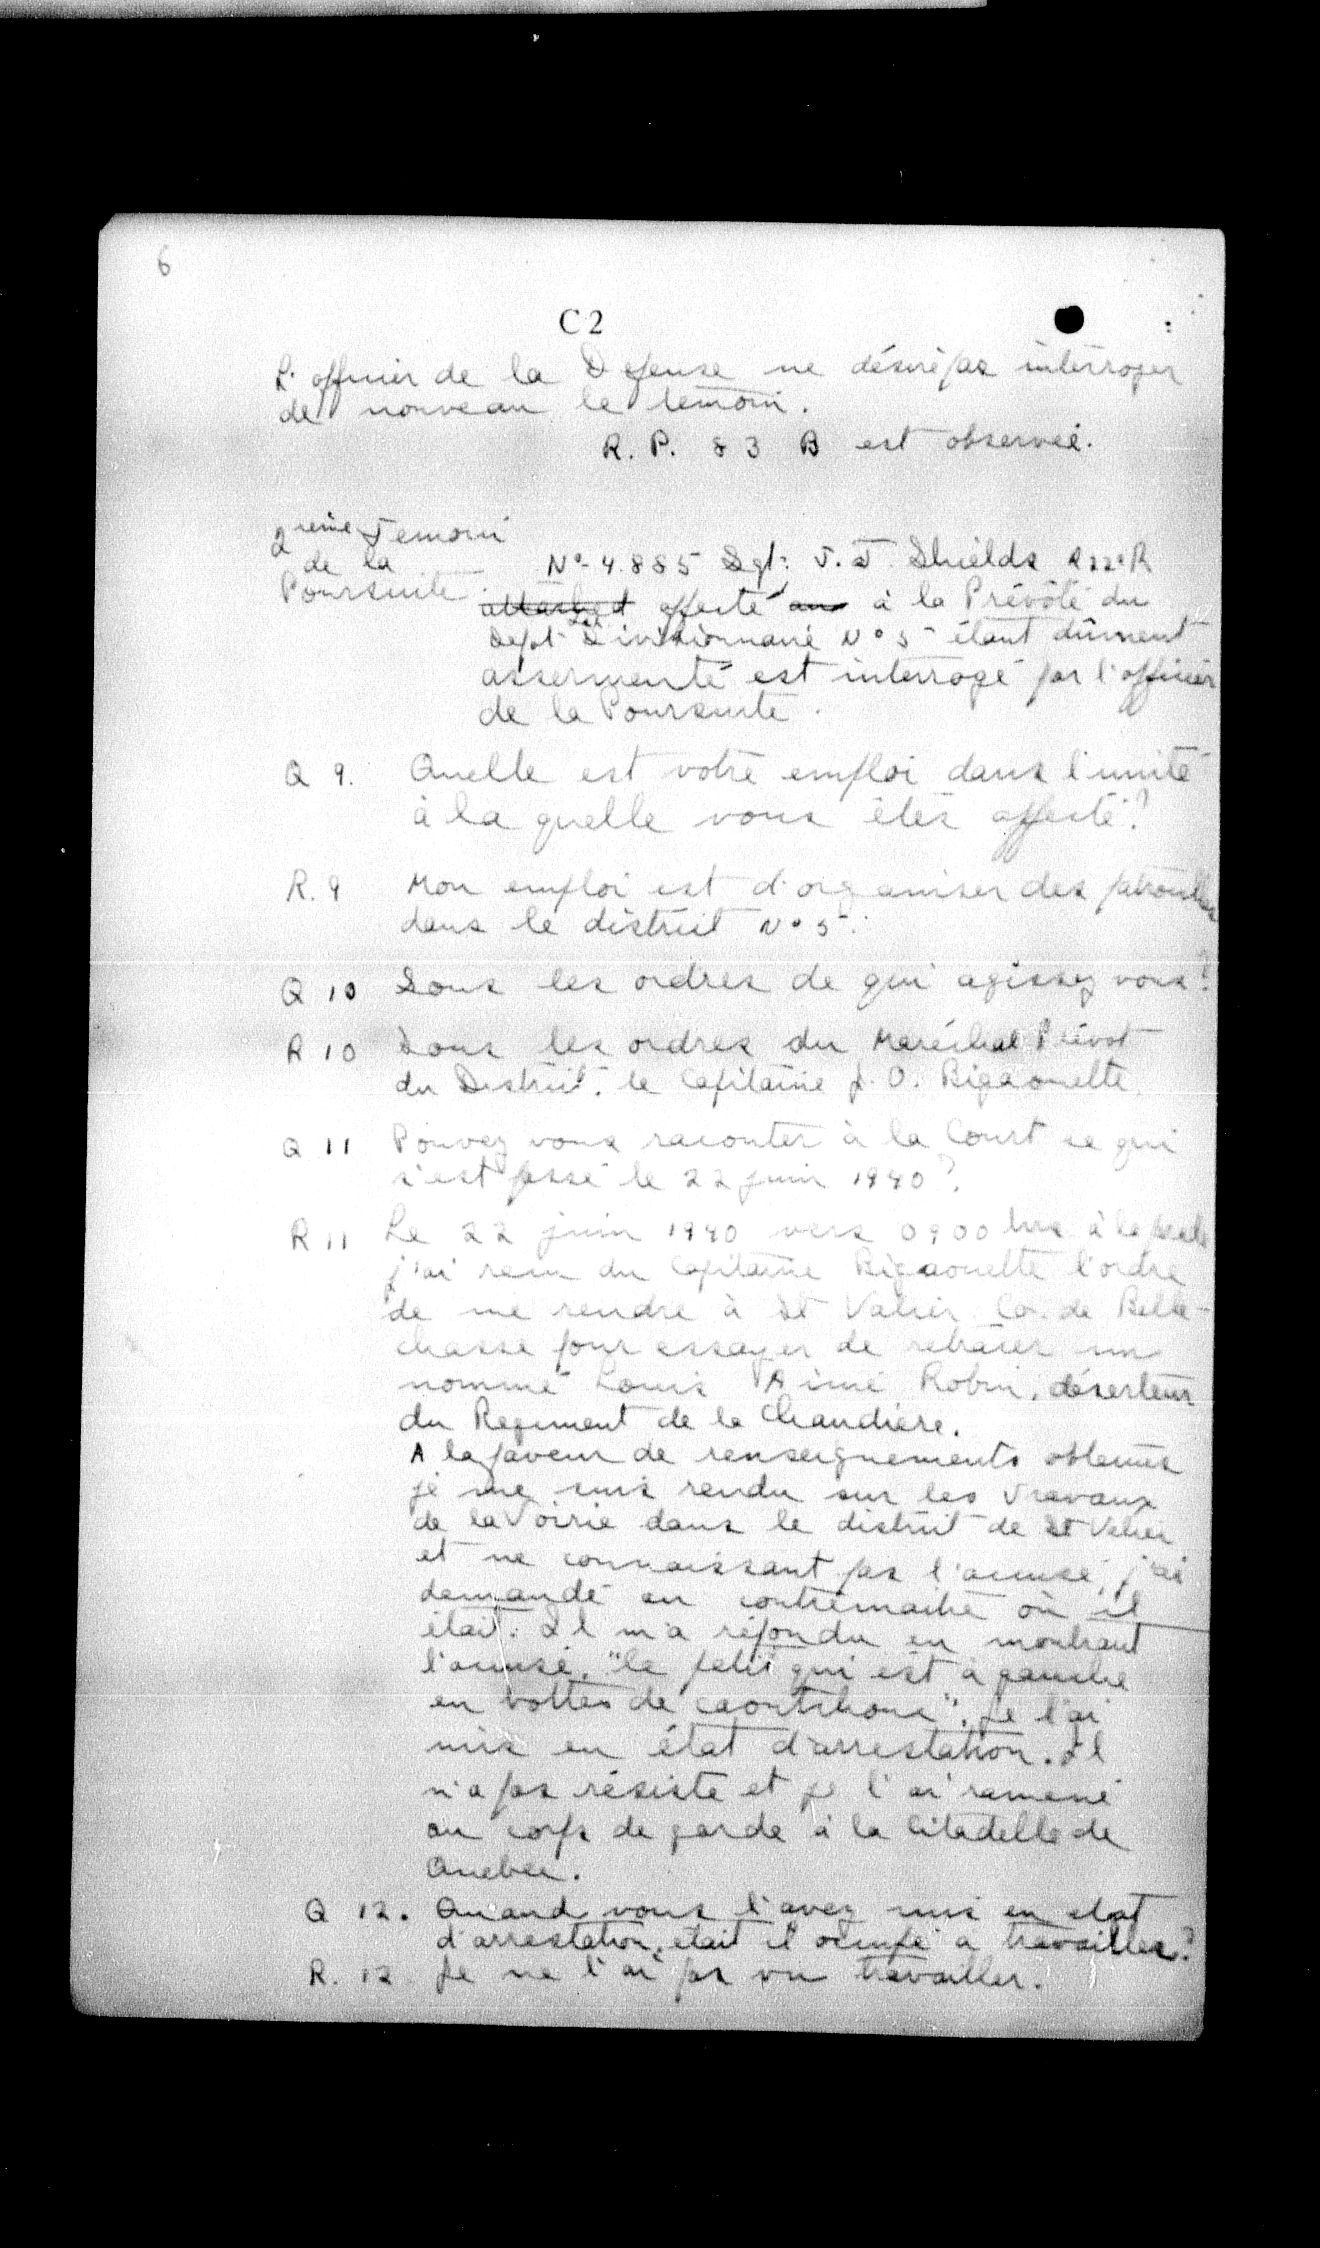 6
C2
L'officier de la Défense ne désire pas interroger
de nouveau le temoin.
R. P. 83 B est observée.
2ieme Temoin
de la
Poursuite.
No. 4885 Sgt. J. J. Shields R22eR
attached affecté au à la Prévôté du
Depot Divisionnaire No 5 étant dûment
assermenté est interrogé par l'officier
de la Poursuite.
Q 9. Quelle est votre emploi dans l'unité
à la quelle vous êtes affecté?
R. 9 Mon emploi est d'organiser des patrouilles
dans le district No 5.
Q 10 Sous les ordres de qui agissez vous?
R 10 Sous les ordres du Maréchal Prévot
du District, le Capitaine J. O. Bigaouette
Q 11 Pouvez vous raconter à la Court ce qui
s'est passé le 22 juin 1940?
R 11 Le 22 juin 1940 vers 0900 hrs
j'ai recu du Capitaine Bigaouette l'ordre
de me rendre à St Valier Co. de Belle-
chasse pour essayer de retracer un
nommé Louis Aimé Robin, déserteur
du Regiment de la Chaudière.
A la faveur de renseignements obtenus
je me suis rendu sur les Travaux
de la Voirie dans le district de St Valier
et ne connaissant pas l'accusé, j'ai
demandé au contremaitre où il
était. Il m'a répondu en montrant
l'accusé, "le petit qui est à gauche
en bottes de caoutchouc". Je l'ai
mis en état d'arrestation. Il
n'a pas résisté et je l'ai ramené
au corps de garde à la Citadelle de
Quebec.
Q 12. Quand vous l'avez mis en etat
d'arrestation, était il occupé a travailler?
R. 12 Je ne l'ai pas vu travailler.